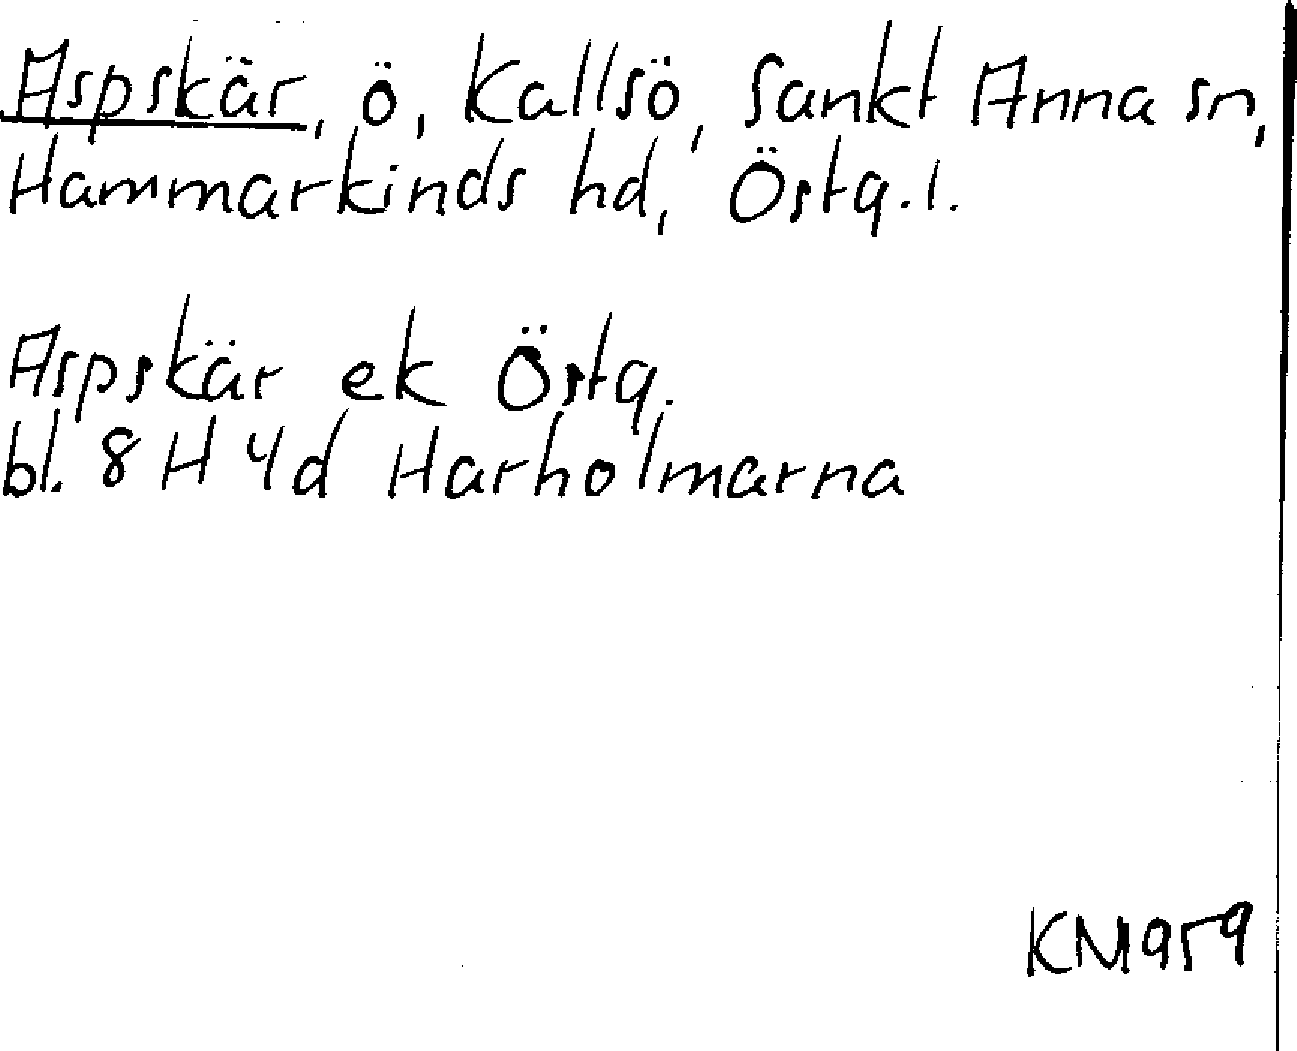 Aspskär, ö, Kallsö, Sankt Anna sn,
Hammarkinds hd, Östg.l.
Aspskär ek Östg.
bl. 8 H 4d Harholmarna
KM959